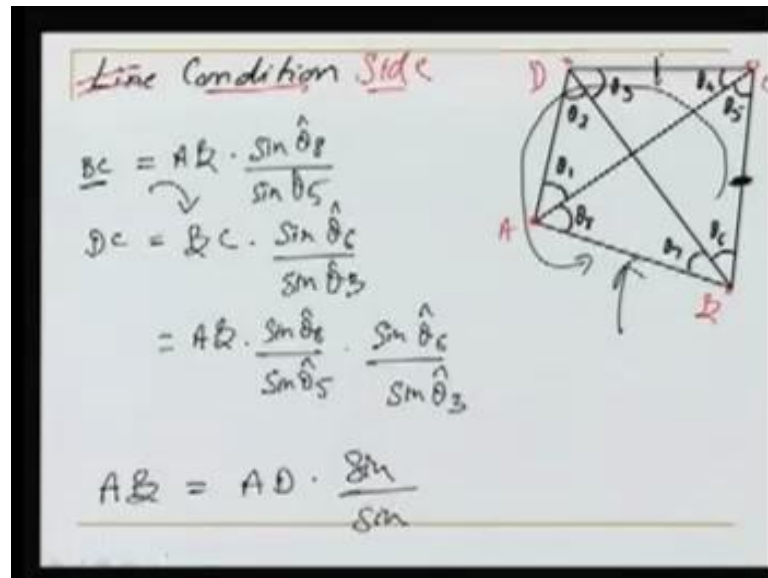 Line Condition Side
BC = AB · sin θ̂8 / sin θ̂5
DC = BC · sin θ̂6 / sin θ̂3
= AB · sin θ̂8 / sin θ̂5 · sin θ̂6 / sin θ̂3
AB = AD · sin / sin
D
C
θ3
θ4
θ2
θ5
θ1
A
θ8
θ7
θ6
B